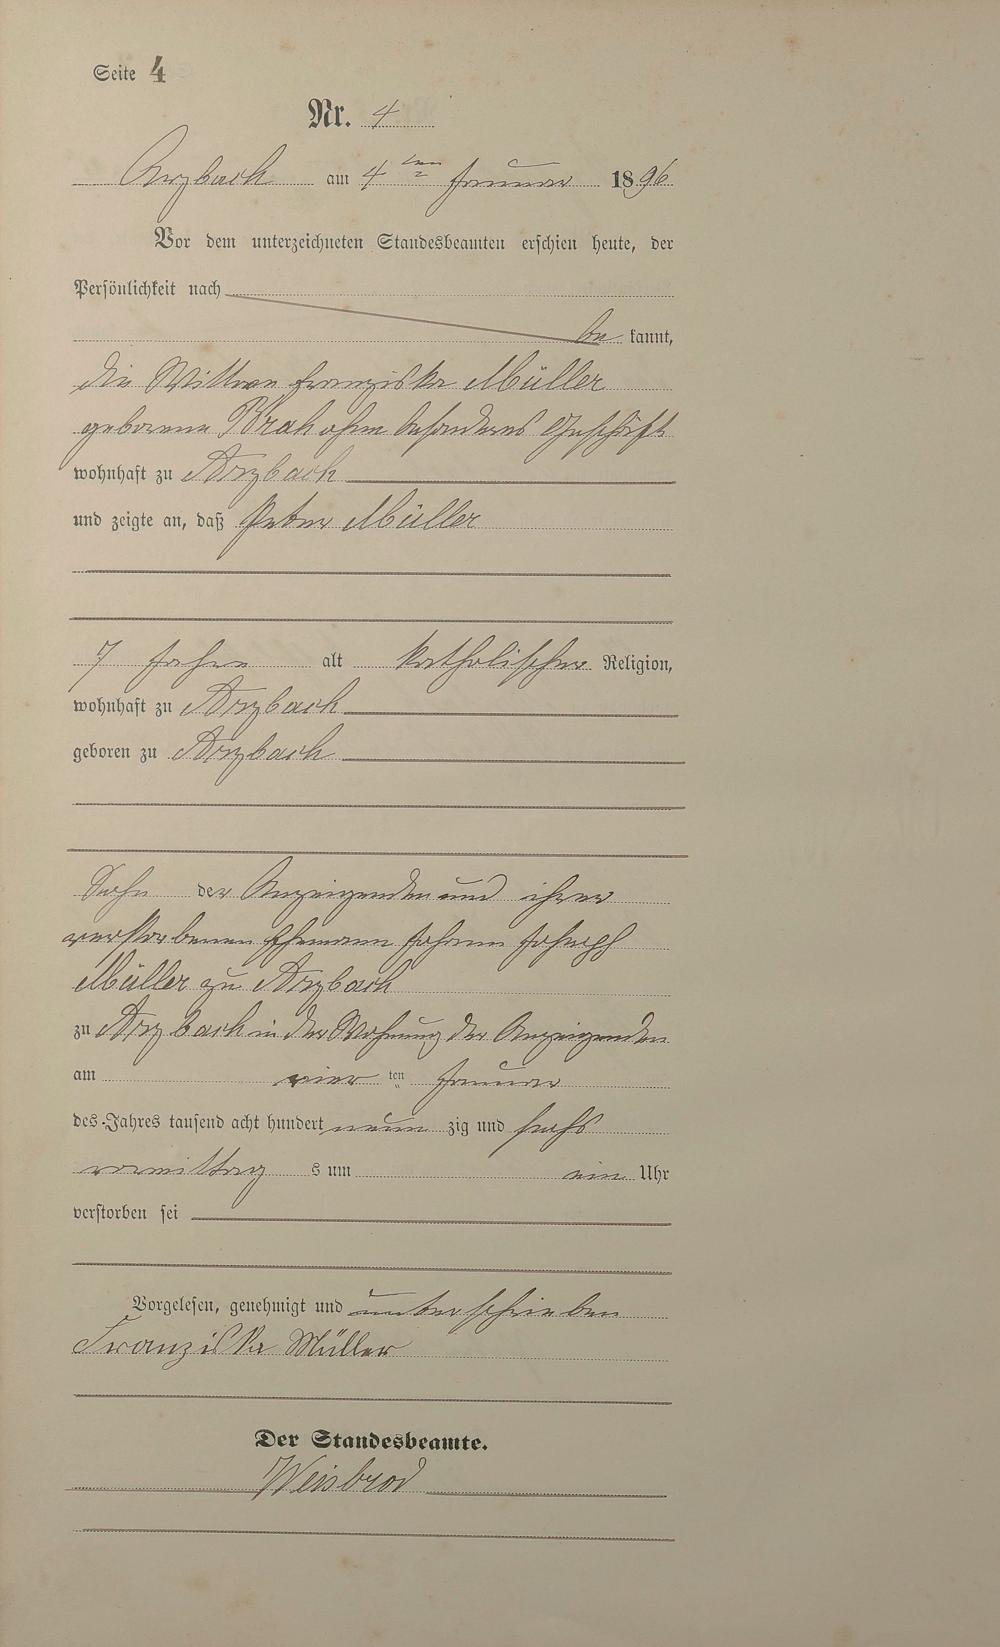 Seite 4
Nr. 4
Arzbach am 4 ten Januar 1896
Vor dem unterzeichneten Standesbeamten erschien heute, der
Persönlichkeit nach
be kannt,
die Wittwe Franziska Müller
geborene Brah ohne besonderes Geschäft
wohnhaft zu Arzbach
und zeigte an, daß Peter Müller
7 Jahre alt katholischer Religion,
wohnhaft zu Arzbach
geboren zu Arzbach
Sohn der Anzeigenden und ihrer
verstorbenen Ehemann Johann Joseph
Müller zu Arzbach
zu Arzbach in der Wohnung der Anzeigenden
am vier ten Januar
des Jahres tausend acht hundert neun zig und sechs
vormittag s um ein Uhr
verstorben sei
Vorgelesen, genehmigt und unterschrieben
Franziska Müller
Der Standesbeamte.
Weisbrod